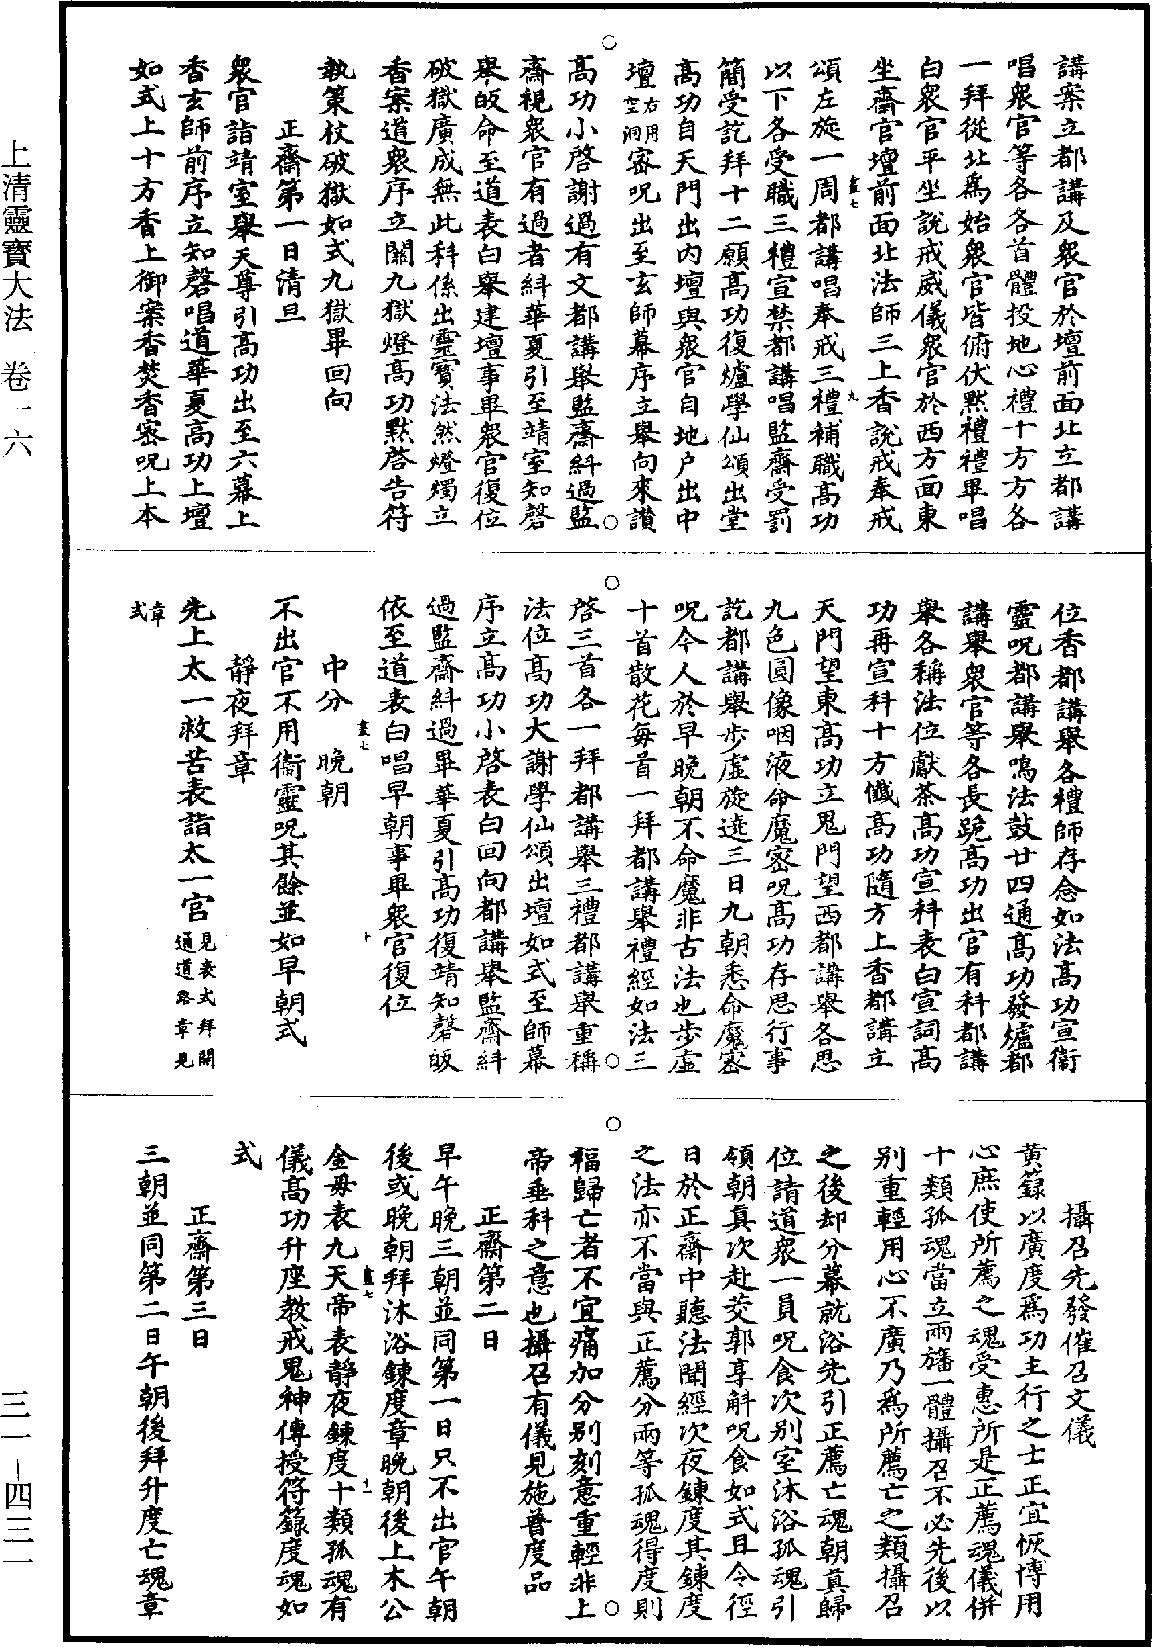 上清靈寶大法 卷一六
三一-四三一
講案立都講及衆官於壇前面北立都講
唱衆官等各各首體投地心禮十方方各
一拜從北爲始衆官皆俯伏默禮禮畢唱
白衆官平坐説戒威儀衆官於西方面東
坐齋官壇前面北法師三上香説戒奉戒
頌左旋一周都講唱奉戒三禮補職高功
以下各受職三禮宣禁都講唱監齋受罰
簡受訖拜十二願高功復爐學仙頌出堂
高功自天門出内壇與衆官自地户出中
壇右用空洞密呪出至玄師幕序立舉向來讃
高功小啓謝過有文都講舉監齋糾過監
齋視衆官有過者糾華夏引至靖室知磬
舉皈命至道表白舉建壇事畢衆官復位
破獄廣成無此科係出靈寳法然燈燭立
香案道衆序立關九獄燈高功默啓告符
執策杖破獄如式九獄畢回向
正齋第一日清旦
衆官詣靖室舉天尊引高功出至六幕上
香玄師前序立知磬唱道華夏高功上壇
如式上十方香上御案香焚香密呪上本
位香都講舉各禮師存念如法高功宣衛
靈呪都講舉鳴法鼓廿四通高功發爐都
講舉衆官等各長跪高功出官有科都講
舉各稱法位獻茶高功宣科表白宣詞高
功再宣科十方懺高功隨方上香都講立
天門望東高功立鬼門望西都講舉各思
九色圓像咽液命魔密呪高功存思行事
訖都講舉步虛旋遶三日九朝悉命魔密
呪今人於早晚朝不命魔非古法也步虛
十首散花每首一拜都講舉禮經如法三
啓三首各一拜都講舉三禮都講舉重稱
法位高功大謝學仙頌出壇如式至師幕
序立高功小啓表白回向都講舉監齋糾
過監齋糾過畢華夏引高功復靖知磬皈
依至道表白唱早朝事畢衆官復位
中分 晚朝
不出官不用衛靈呪其餘並如早朝式
靜夜拜章
先上太一救苦表詣太一宫見表式拜開通道路章見
章式
攝召先發催召文儀
黄籙以廣度爲功主行之士正宜恢博用
心庶使所薦之魂受惠所是正薦魂儀併
十類孤魂當立兩旛一體攝召不必先後以
别重輕用心不廣乃爲所薦亡之類攝召
之後却分幕就浴先引正薦亡魂朝真歸
位請道衆一員呪食次别室沐浴孤魂引
領朝真次赴茭郭享斛呪食如式且令徑
日於正齋中聽法聞經次夜鍊度其鍊度
之法亦不當與正薦分兩等孤魂得度則
福歸亡者不宜痛加分别刻意重輕非上
帝垂科之意也攝召有儀見施普度品
正齋第二日
早午晚三朝並同第一日只不出官午朝
後或晚朝拜沐浴鍊度章晚朝後上木公
金母表九天帝表靜夜鍊度十類孤魂有
儀高功升座教戒鬼神傳授符籙度魂如
式
正齋第三日
三朝並同第二日午朝後拜升度亡魂章